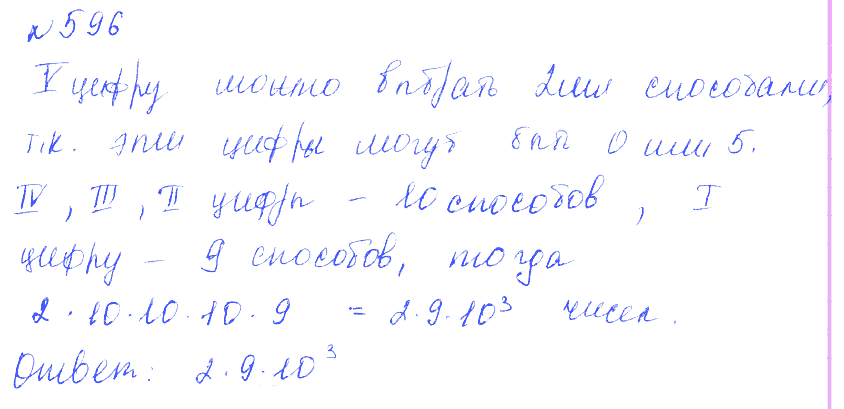 № 596
V цифру можно выбрать 2мя способами,
т.к. эти цифры могут быть 0 или 5.
IV, III, II цифры – 10 способов, I
цифру – 9 способов, тогда
2 · 10 · 10 · 10 · 9 = 2 · 9 · 10³ чисел.
Ответ: 2 · 9 · 10³